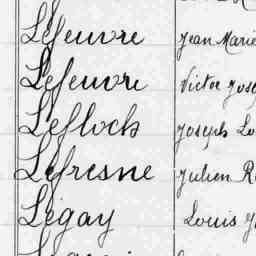 Lefeuvre Jean Marie
Lefeuvre Victor
Lefloch Joseph
Lefresne Julien
Legay Louis